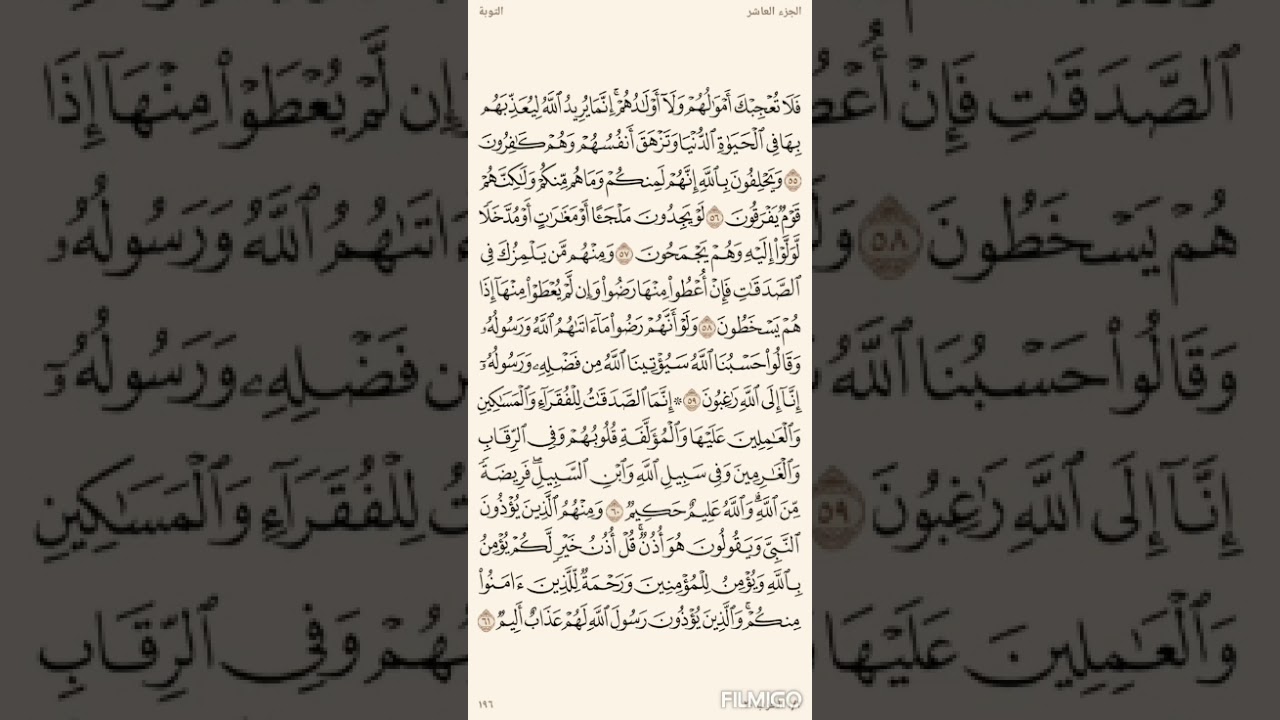 الجزء العاشر
التوبة
فَلَا تُعۡجِبۡكَ أَمۡوَٰلُهُمۡ وَلَآ أَوۡلَٰدُهُمۡۚ إِنَّمَا يُرِيدُ ٱللَّهُ لِيُعَذِّبَهُم
بِهَا فِي ٱلۡحَيَوٰةِ ٱلدُّنۡيَا وَتَزۡهَقَ أَنفُسُهُمۡ وَهُمۡ كَٰفِرُونَ
٥٥ وَيَحۡلِفُونَ بِٱللَّهِ إِنَّهُمۡ لَمِنكُمۡ وَمَا هُم مِّنكُمۡ وَلَٰكِنَّهُمۡ
قَوۡمٞ يَفۡرَقُونَ ٥٦ لَوۡ يَجِدُونَ مَلۡجَـًٔا أَوۡ مَغَٰرَٰتٍ أَوۡ مُدَّخَلٗا
لَّوَلَّوۡاْ إِلَيۡهِ وَهُمۡ يَجۡمَحُونَ ٥٧ وَمِنۡهُم مَّن يَلۡمِزُكَ فِي
ٱلصَّدَقَٰتِ فَإِنۡ أُعۡطُواْ مِنۡهَا رَضُواْ وَإِن لَّمۡ يُعۡطَوۡاْ مِنۡهَآ إِذَا
هُمۡ يَسۡخَطُونَ ٥٨ وَلَوۡ أَنَّهُمۡ رَضُواْ مَآ ءَاتَىٰهُمُ ٱللَّهُ وَرَسُولُهُۥ
وَقَالُواْ حَسۡبُنَا ٱللَّهُ سَيُؤۡتِينَا ٱللَّهُ مِن فَضۡلِهِۦ وَرَسُولُهُۥٓ
إِنَّآ إِلَى ٱللَّهِ رَٰغِبُونَ ٥٩ ۞ إِنَّمَا ٱلصَّدَقَٰتُ لِلۡفُقَرَآءِ وَٱلۡمَسَٰكِينِ
وَٱلۡعَٰمِلِينَ عَلَيۡهَا وَٱلۡمُؤَلَّفَةِ قُلُوبُهُمۡ وَفِي ٱلرِّقَابِ
وَٱلۡغَٰرِمِينَ وَفِي سَبِيلِ ٱللَّهِ وَٱبۡنِ ٱلسَّبِيلِۖ فَرِيضَةٗ
مِّنَ ٱللَّهِۗ وَٱللَّهُ عَلِيمٌ حَكِيمٞ ٦٠ وَمِنۡهُمُ ٱلَّذِينَ يُؤۡذُونَ
ٱلنَّبِيَّ وَيَقُولُونَ هُوَ أُذُنٞۚ قُلۡ أُذُنُ خَيۡرٖ لَّكُمۡ يُؤۡمِنُ
بِٱللَّهِ وَيُؤۡمِنُ لِلۡمُؤۡمِنِينَ وَرَحۡمَةٞ لِّلَّذِينَ ءَامَنُواْ
مِنكُمۡۚ وَٱلَّذِينَ يُؤۡذُونَ رَسُولَ ٱللَّهِ لَهُمۡ عَذَابٌ أَلِيمٞ ٦١
١٩٦
FILMIGO